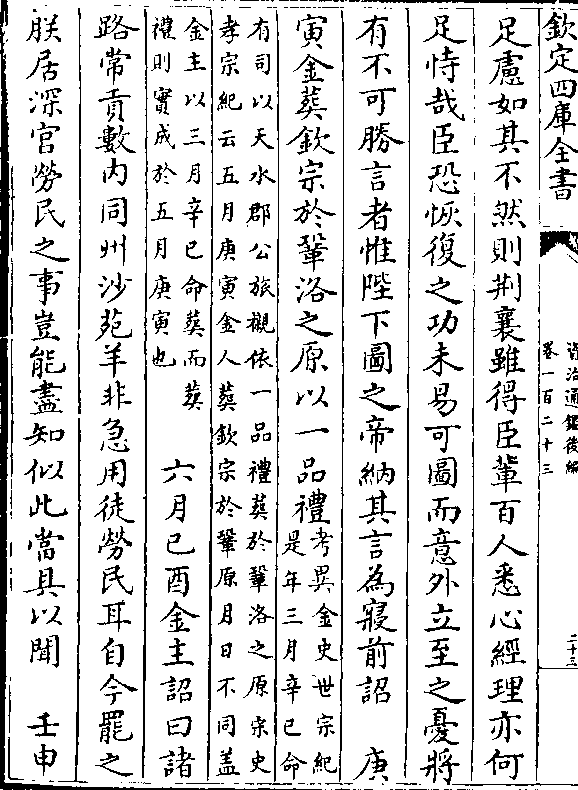 欽定四庫全書
資治通鑑後編
卷一百二十三
二十三
足慮如其不然則荆襄雖得臣輩百人悉心經理亦何
足恃哉臣恐恢復之功未易可圖而意外立至之憂將
有不可勝言者惟陛下圖之帝納其言為寢前詔　庚
寅金葬欽宗於鞏洛之原以一品禮
考異金史世宗紀
是年三月辛巳命
有司以天水郡公旅櫬依一品禮葬於鞏洛之原宋史
孝宗紀云五月庚寅金人葬欽宗於鞏原月日不同盖
金主以三月辛巳命葬而葬
禮則實成於五月庚寅也
六月己酉金主詔曰諸
路常貢數内同州沙苑羊非急用徒勞民耳自今罷之
朕居深宫勞民之事豈能盡知似此當具以聞　壬申